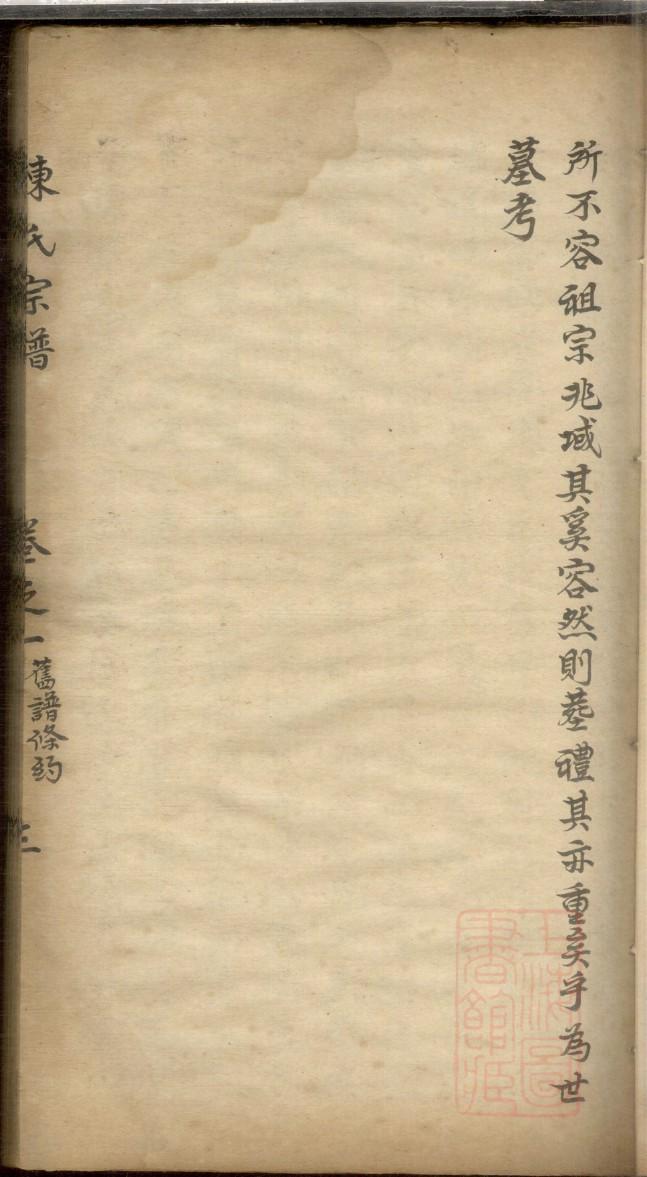 所不容祖宗兆域其奚容然則墓禮其亦重矣乎為世
墓考
陳氏宗譜
卷之一
舊譜條約
三
上海圖
書館藏